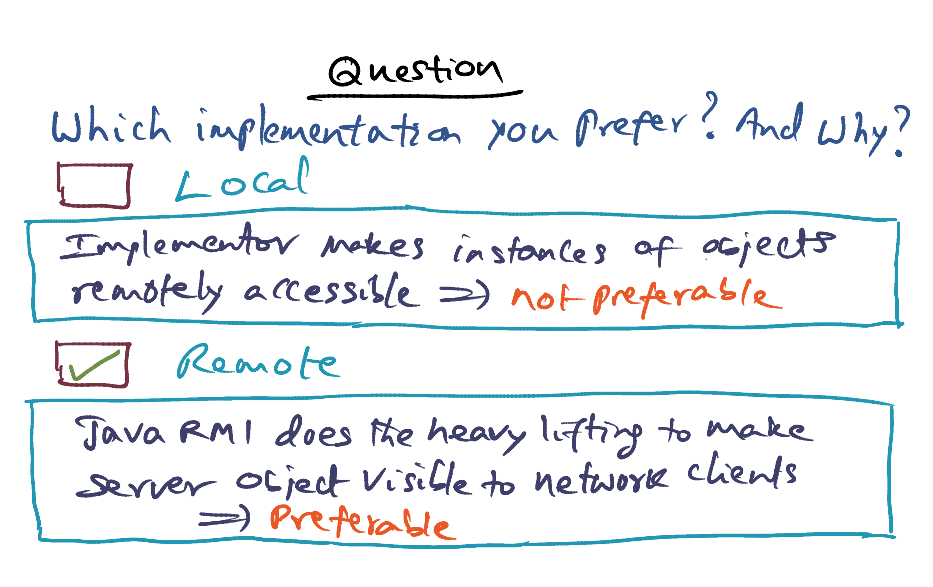 Question
Which implementation you prefer? And Why?
Local
Implementor makes instances of objects
remotely accessible => not preferable
Remote
Java RMI does the heavy lifting to make
server object visible to network clients
=> Preferable